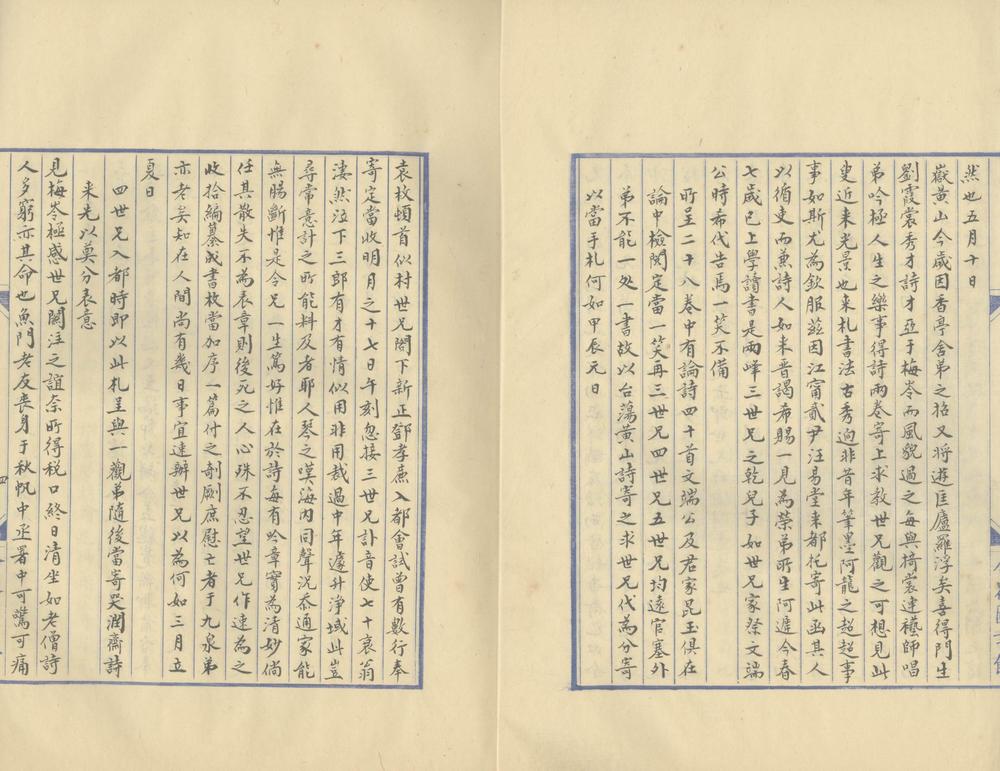 然也五月十日
嶽黃山今歲因香亭舍弟之招又將遊匡廬羅浮矣喜得門生
劉霞裳秀才詩才亞于梅岑而風貌過之每與揚裳連襼師唱
弟吟極人生之樂事得詩兩卷寄上求教世兄觀之可想見此
叟近来光景也来札書法古秀逈非昔年筆墨阿龍之超超事
事如斯尤為欽服茲因江甯貳尹汪易堂来都托寄此函其人
以循吏而兼詩人如来晉謁希賜一見為榮弟所生阿遲今春
七歲已上學讀書是兩峰三世兄之乾兒子如世兄家祭文端
公時希代告焉一笑不備
所呈二十八卷中有論詩四十首文端公及君家昆玉俱在
論中檢閱定當一笑再三世兄四世兄五世兄均遠官塞外
弟不能一处一書故以台蕩黃山詩寄之求世兄代為分寄
以當手札何如甲辰元日
袁枚頓首似村世兄閣下新正鄧孝廉入都會試曾有數行奉
寄定當收明月之十七日午刻忽接三世兄訃音使七十衰翁
淒然泣下三郎有才有情似用非用裁過中年遽升淨域此豈
尋常意計之所能料及者耶人琴之嘆海內同聲況忝通家能
無腸斷惟是令兄一生篤好惟在於詩每有吟章實為清妙倘
任其散失不為表章則後死之人心殊不忍望世兄作速為之
收拾編纂成書枚當加序一篇付之剞劂庶慰亡者于九泉弟
亦老矣知在人間尚有幾日事宜速辦世兄以為何如三月立
夏日
四世兄入都時即以此札呈與一觀弟隨後當寄哭潤齋詩
来先以奠分表意
見梅岑極感世兄關注之誼奈所得税口終日清坐如老僧詩
人多窮亦其命也魚門老友喪身于秋帆中丞署中可驚可痛